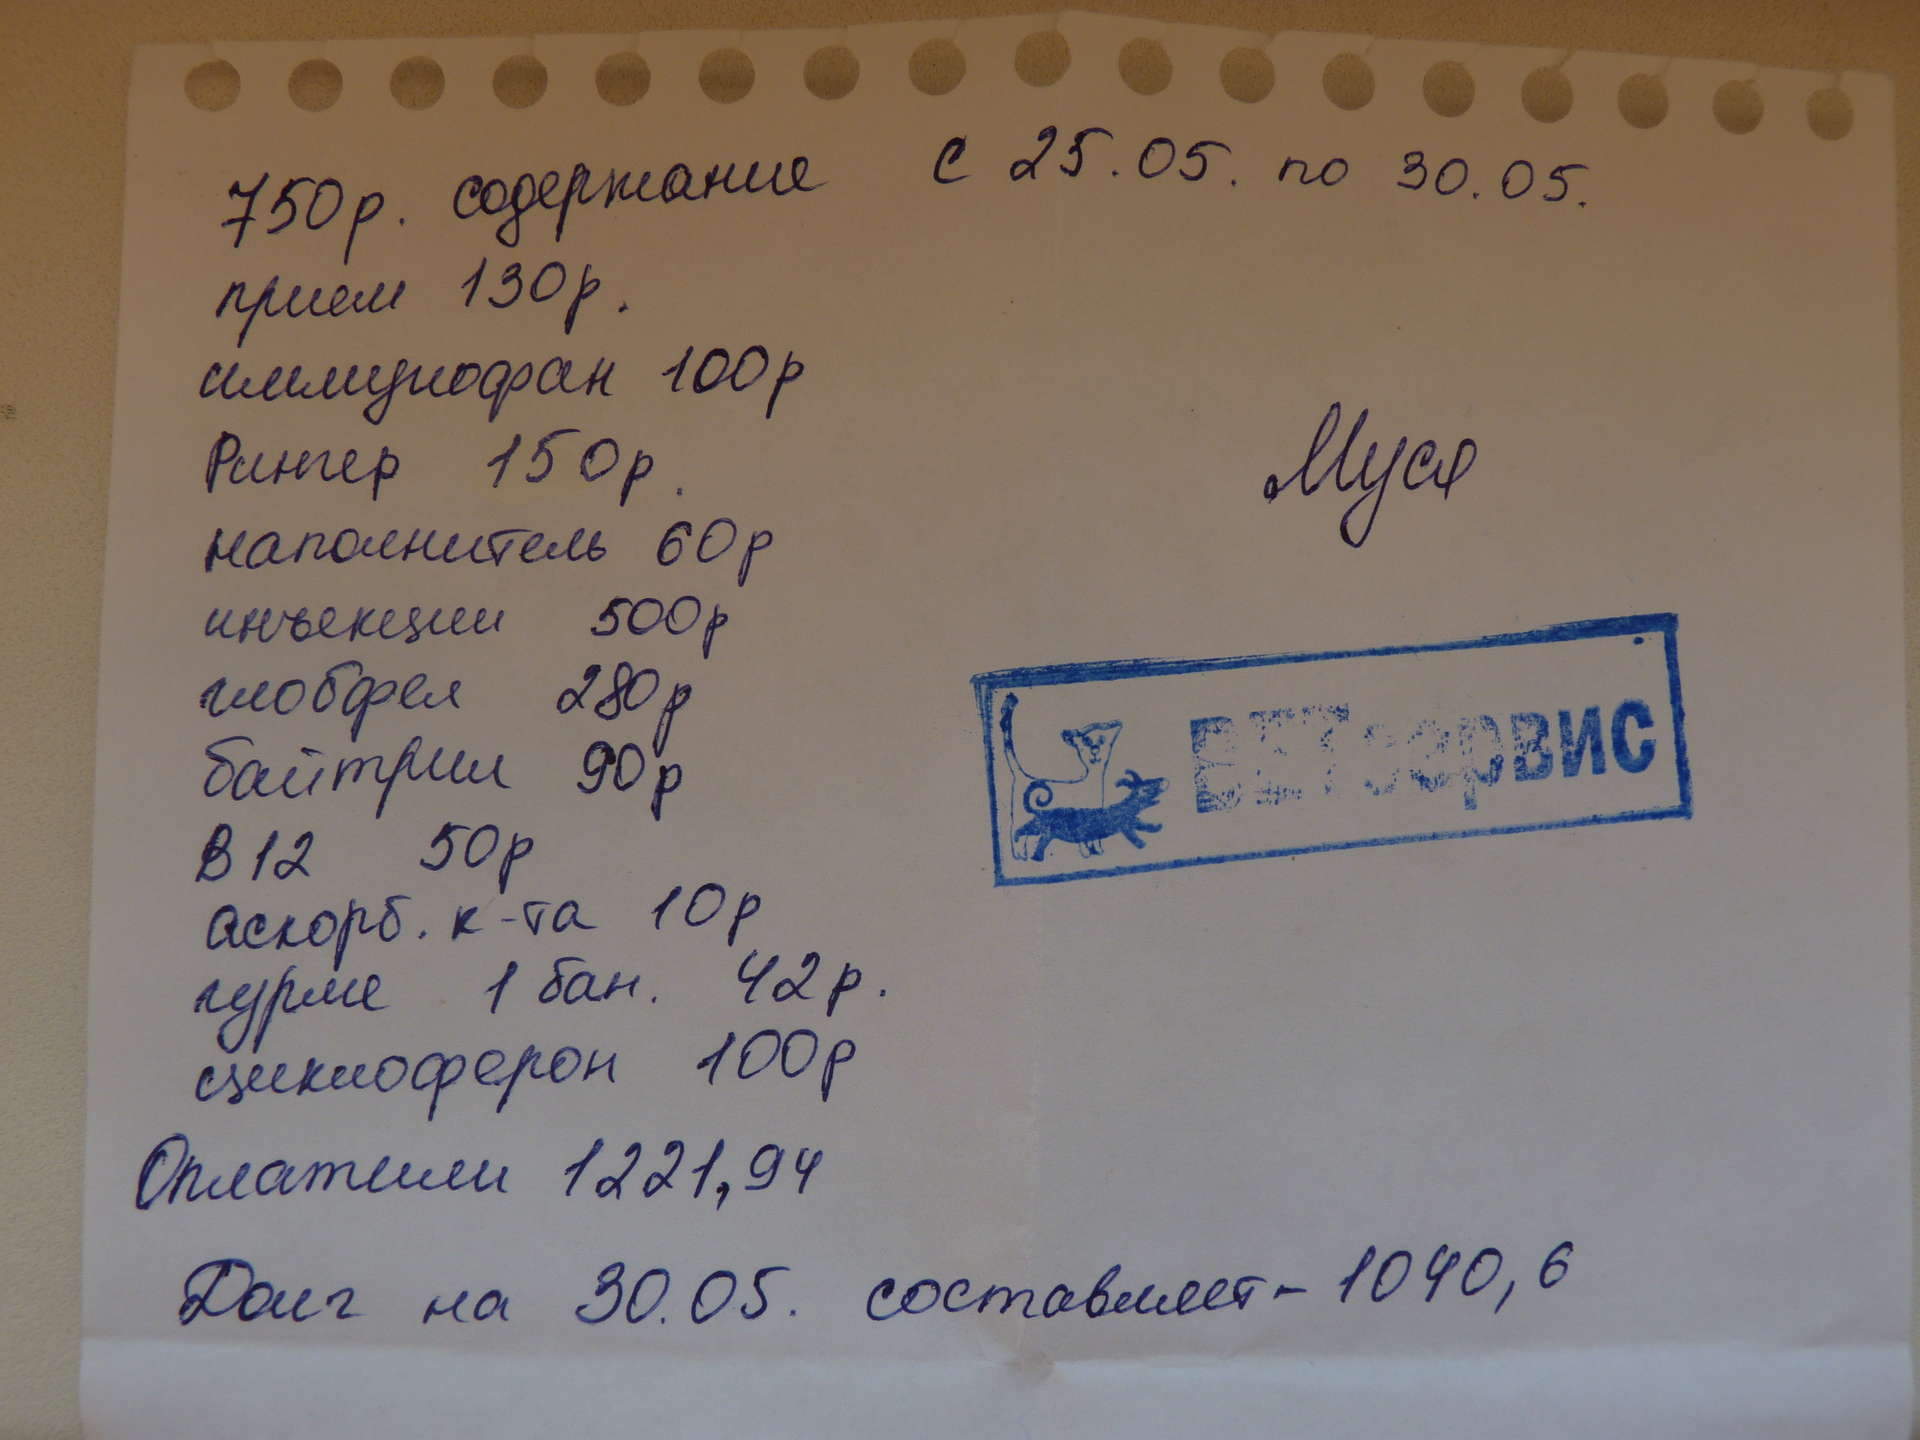 750р. содержание с 25.05. по 30.05.
прием 130р.
иммунофан 100р
Рингер 150р.
Муся
наполнитель 60р
инъекции 500р
глобфел 280р
ВЕТсервис
байтрил 90р
В12 50р
аскорб. к-та 10р
гурме 1 бан. 42р.
циклоферон 100р
Оплатили 1221,94
Долг на 30.05. составляет - 1040,6